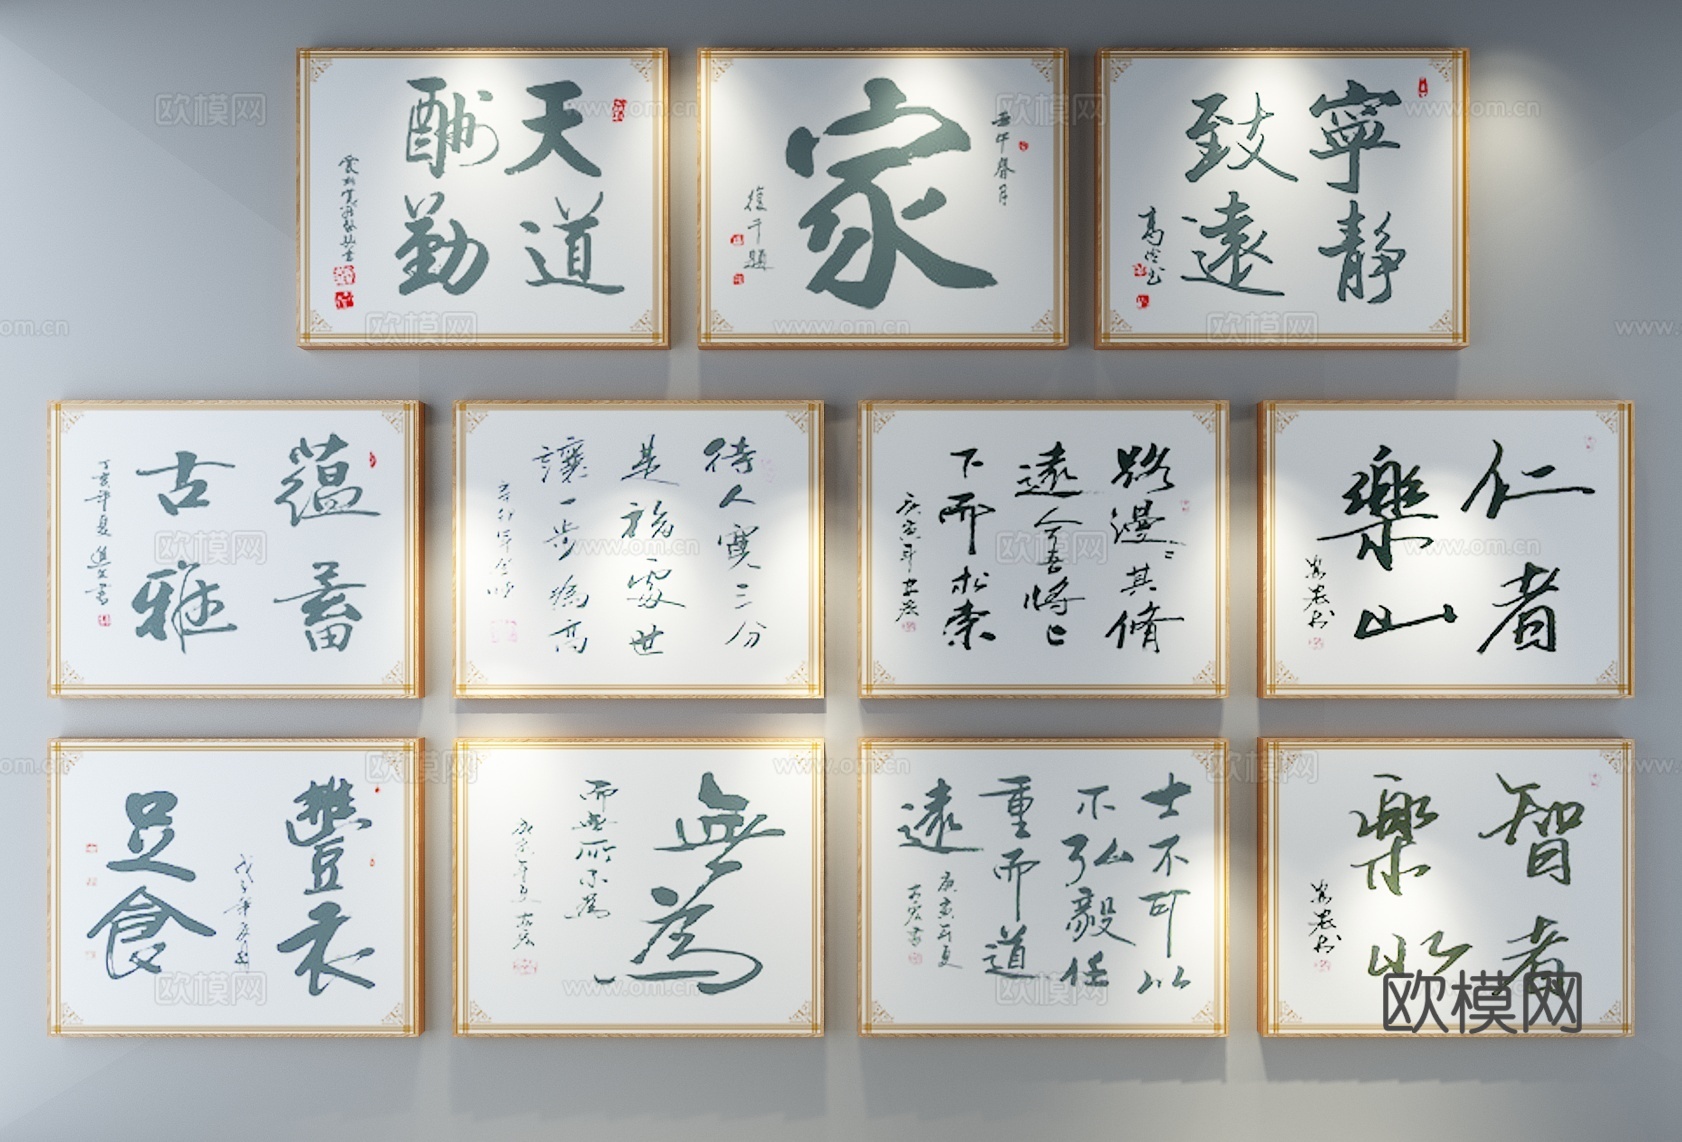 天道
酬勤
家
春月
寧靜
致遠
蘊蓄
古雅
丁亥年夏
待人寬三分
是福處世
讓一步為高
路漫漫其修
遠兮吾將上
下而求索
庚寅年
仁者
樂山
豐衣
足食
戊子年
無為
而無所不為
士不可以
不弘毅任
重而道
遠
智者
樂水
欧模网
www.om.cn